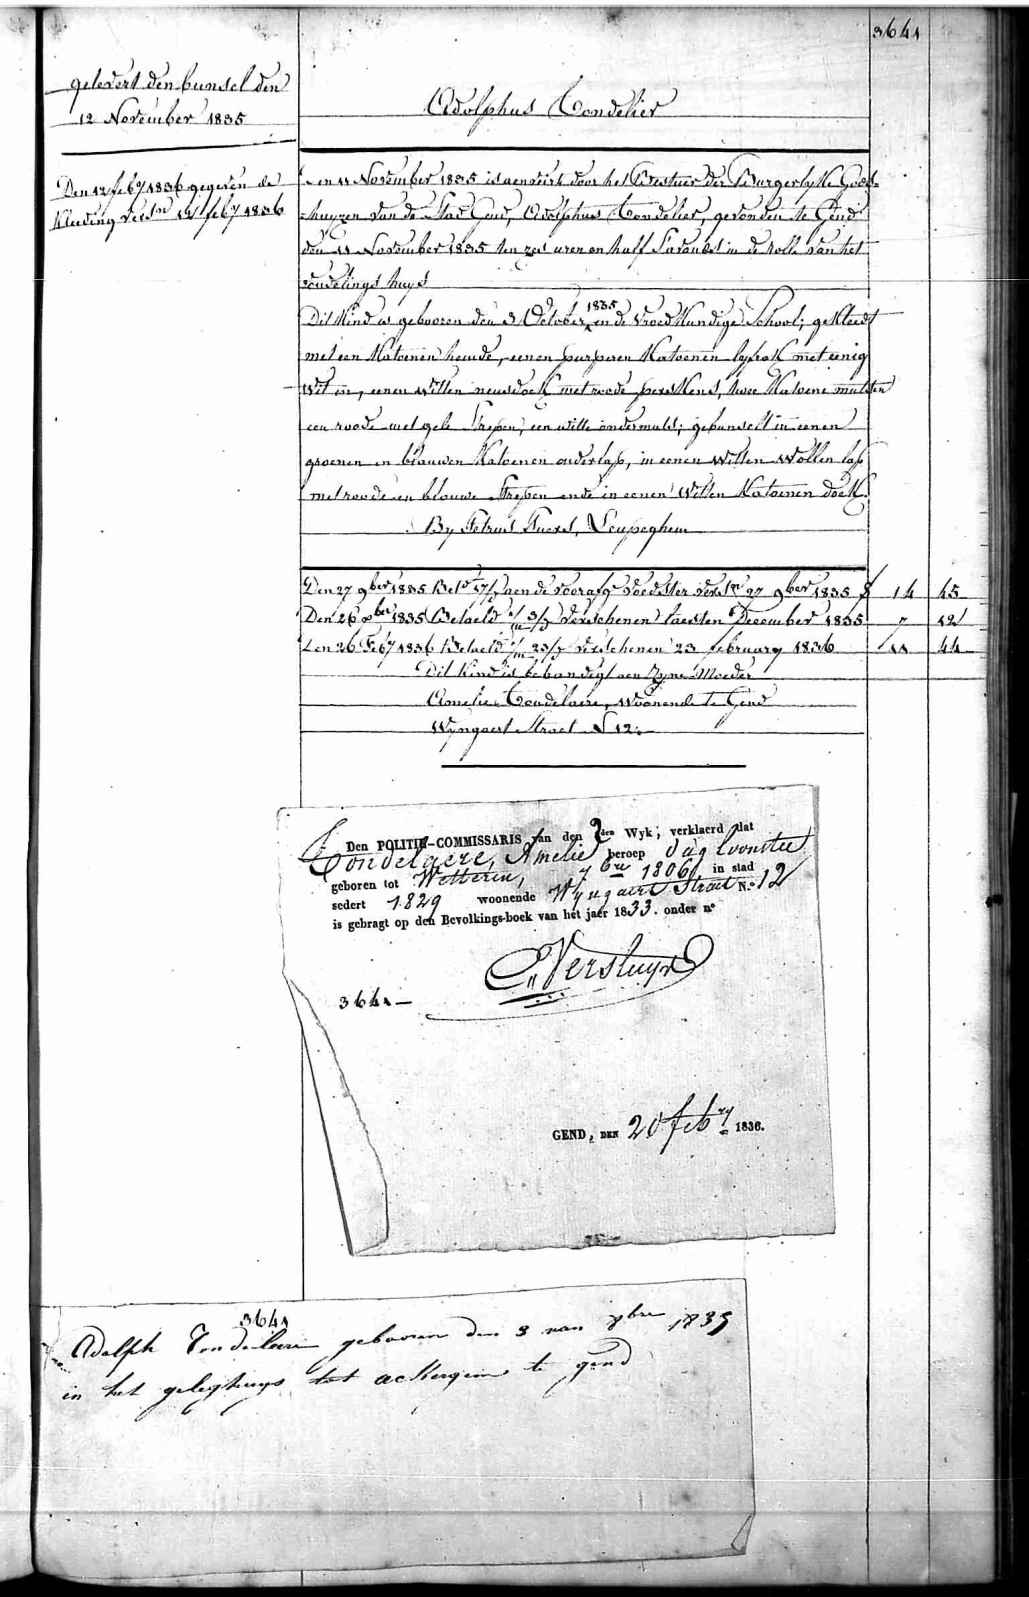 3641
gelevert den bunsel den
12 November 1835
Adolphus Tondelier
Den 12 feb.y 1836 gegeven de
Kleeding versn 12 feb.y 1836
Den 11 November 1835 is aenveirt door het Bestuer der Burgerlyke Gods-
-huyzen van de Stad Gend, Adolphus Tondelier, gevonden te Gend
den 11 November 1835 ten zes uren en half s'avonds in de rolle van het
vondelings huys
Dit Kind is gebooren den 3 October 1835 in de Vroedkundige School; gekleedt
met een Katoenen hemde, eenen purperen Katoenen lyfrok met eenig
wit in, eenen witten neusdoek met roode perskens, twee Katoene mutsen
een roode met gele strepen, een witte ondermuts; gebunselt in eenen
groenen en blauwen Katoenen onderlap, in eenen witten wollen lap
met roode en blouwe strepen ende in eenen witten Katoenen doek.
By Petrus Fueres, Leupeghem
Den 27 9ber 1835 Bet.d 17/ aen de voorafge voedster versn 27 9ber 1835 f 14 45
Den 26 xber 1835 Betaeld 3/3 verschenen laesten December 1835 7 12
Den 26 Feb.y 1836 Betaeld 23/3 verschenen 23 february 1836 11 44
Dit Kind is behandigt aen zyne Moeder
Amelie Tondelaire, woonende te Gend
Wyngaert Straet N 12.
Den POLITIE-COMMISSARIS van den 2den Wyk, verklaerd dat
Tondelaere, Amelie beroep dagloonster
geboren tot Wetteren, 7bre 1806 in stad
sedert 1829 woonende Wyngaert Straet N.º 12
is gebragt op den Bevolkings-boek van het jaer 1833. onder nº
Versluys
3641 —
GEND, DEN 20 febry 1836.
3641
Adolph Tondelaire gebooren den 3 van 8bre 1835
in het geleghuys tot ackergem te gend